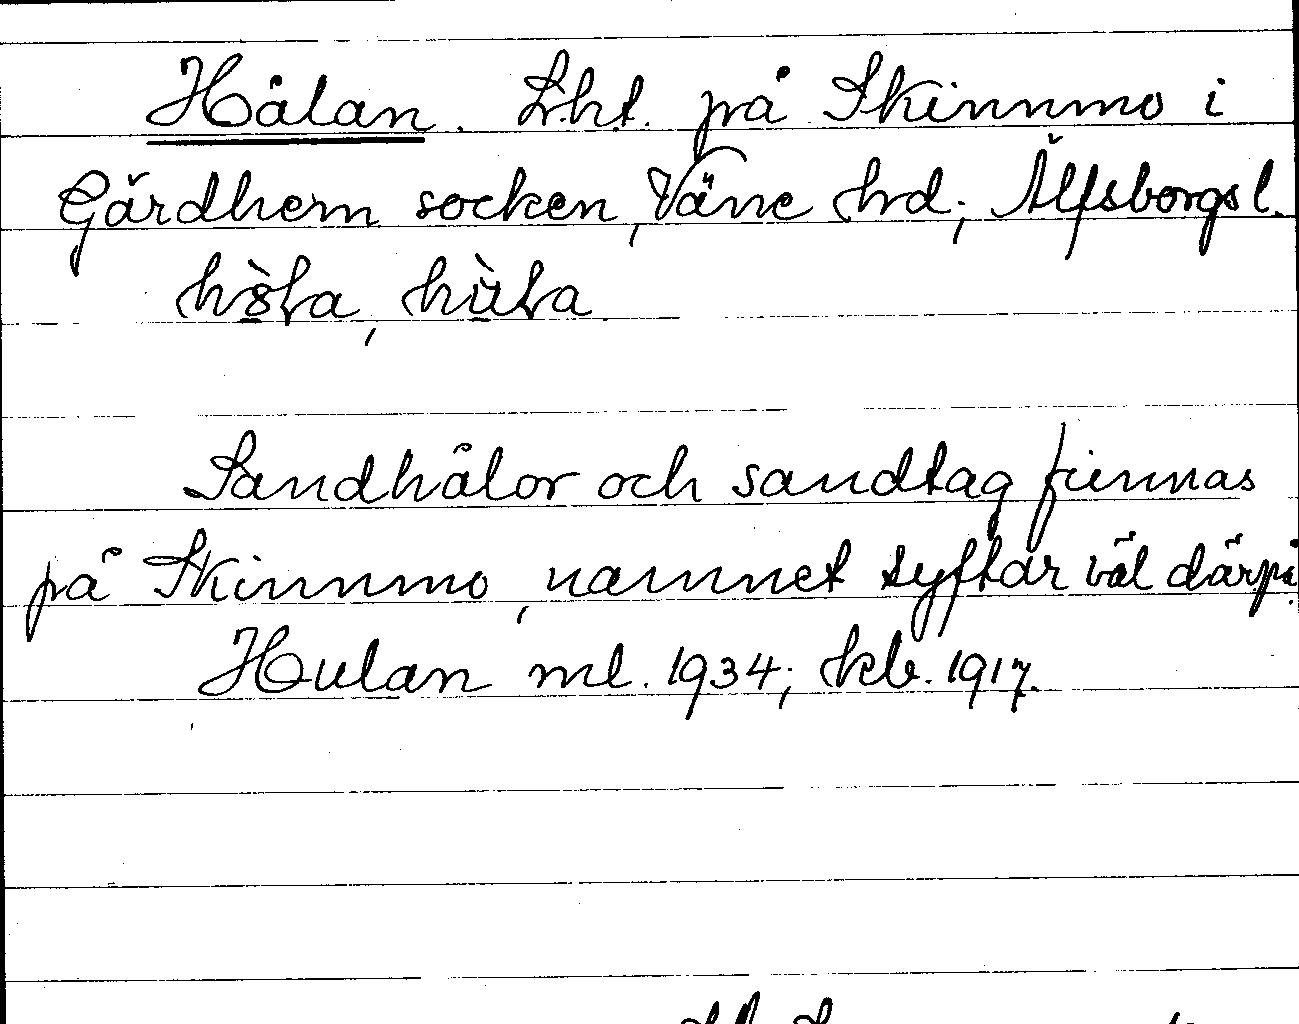 Hålan. Lht. på Skinnmo i
Gärdhem socken, Väne hd; Älfsborgs l.
Sandhålor och sandtag finnas
på Skinnmo, namnet syftar väl därpå.
Hulan ml. 1934; kb. 1917.